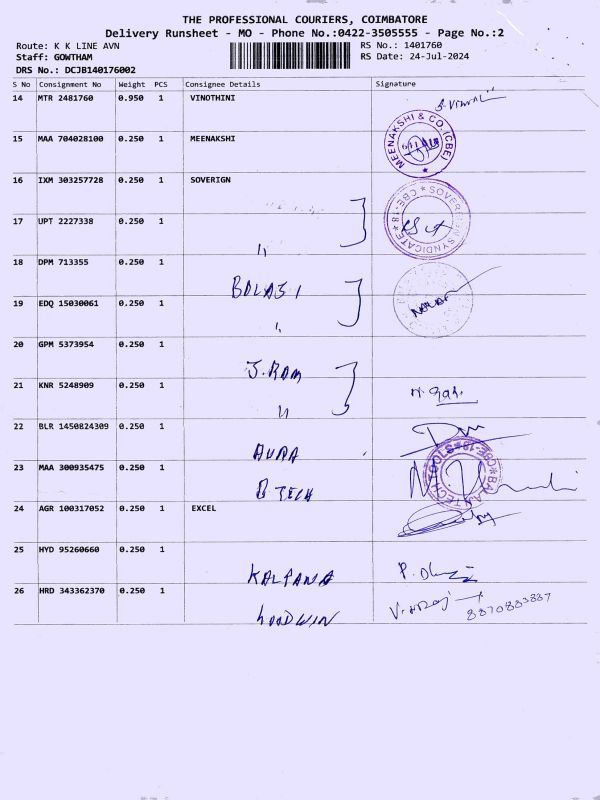 THE PROFESSIONAL COURIERS, COIMBATORE
Delivery Runsheet - MO - Phone No.:0422-3505555 - Page No.:2
Route: K K LINE AVN
RS No.: 1401760
Staff: GOWTHAM
RS Date: 24-Jul-2024
DRS No.: DCJB140176002
S No Consignment No Weight PCS Consignee Details Signature
14 MTR 2481760 0.950 1 VINOTHINI
15 MAA 704028100 0.250 1 MEENAKSHI
MEENAKSHI & CO. (CBE)
16 IXM 303257728 0.250 1 SOVERIGN
SOVEREIGN SYNDICATE * CBE-18 *
17 UPT 2227338 0.250 1 "
18 DPM 713355 0.250 1 BALAJI
19 EDQ 15030061 0.250 1 "
20 GPM 5373954 0.250 1 J.RAM
21 KNR 5248909 0.250 1 "
22 BLR 1450824309 0.250 1 AURA
23 MAA 300935475 0.250 1 B TECH
24 AGR 100317052 0.250 1 EXCEL
25 HYD 95260660 0.250 1 KALPANA
26 HRD 343362370 0.250 1 hoodwin 8870883887